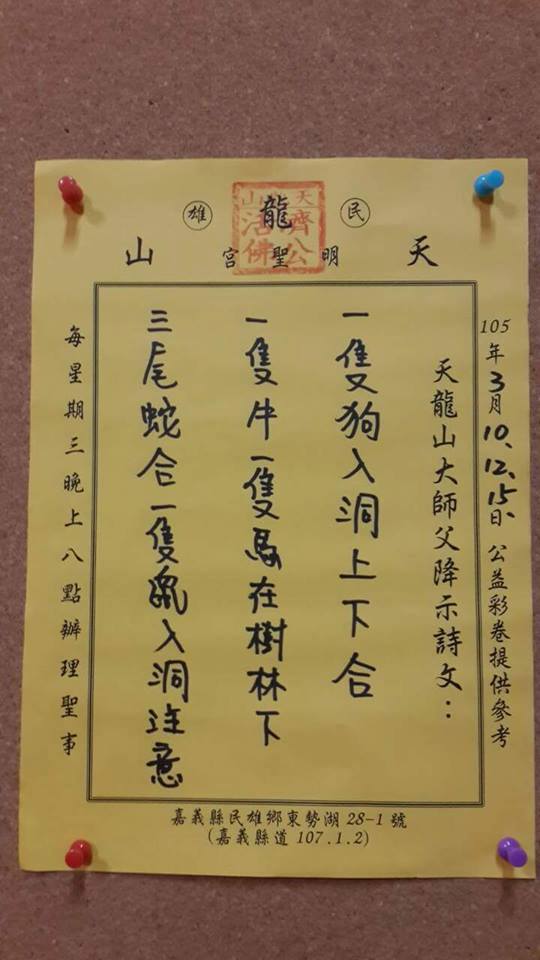 民雄
天龍山
明聖宮
濟公活佛
105年3月10、12、15日 公益彩卷提供參考
天龍山大師父降示詩文：
一隻狗入洞上下合
一隻牛一隻馬在樹林下
三尾蛇合一隻鼠入洞注意
每星期三晚上八點辦理聖事
嘉義縣民雄鄉東勢湖 28-1 號
(嘉義縣道 107.1.2)